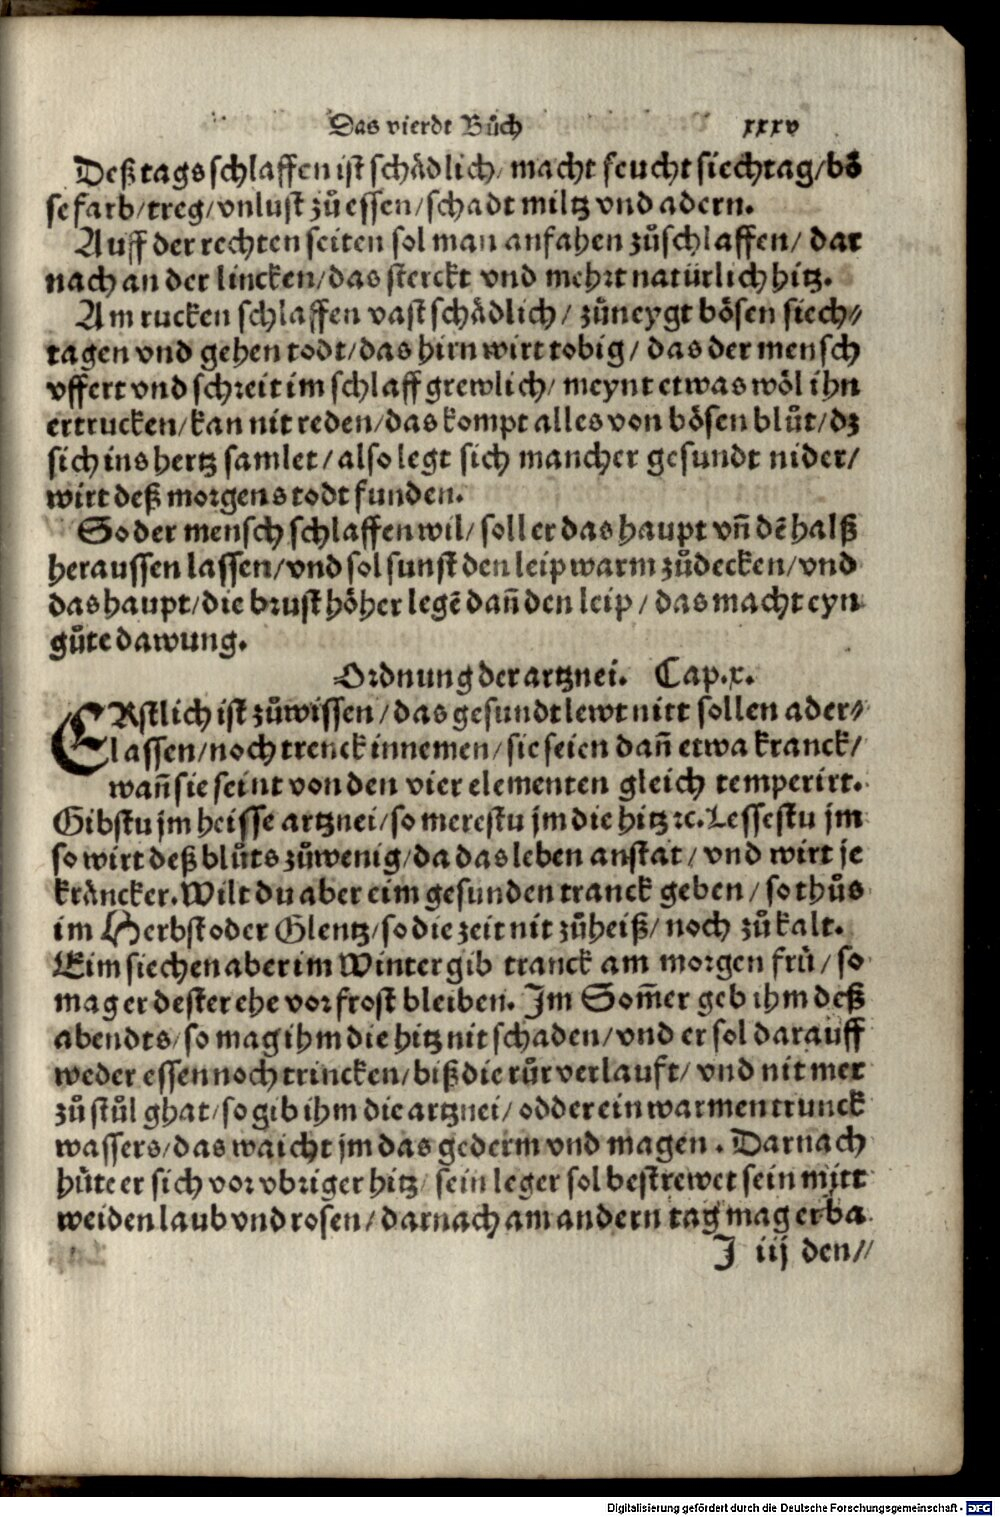 Das vierdt Bůch xxxv
Deß tags schlaffen ist schådlich/ macht feucht siechtag/ bő
se farb/ treg/ vnlust zů essen/ schadt miltz vnd adern.
Auff der rechten seiten sol man anfahen zůschlaffen/ dar
nach an der lincken/ das sterckt vnd mehrt natürlich hitz.
Am rucken schlaffen vast schådlich/ zůneygt bősen siech⸗
tagen vnd gehen todt/ das hirn wirt tobig/ das der mensch
vffert vnd schreit im schlaff grewlich/ meynt etwas wől ihn
ertrucken/ kan nit reden/ das kompt alles von bősen blůt/ dz
sich ins hertz samlet/ also legt sich mancher gesundt nider/
wirt deß morgens todt funden.
So der mensch schlaffen wil/ soll er das haupt vn̄ dē halß
heraussen lassen/ vnd sol sunst den leip warm zůdecken/ vnd
das haupt/ die brust hőher legē dan̄ den leip/ das macht eyn
gůte dawung.
Ordnung der artznei. Cap.x.
ERstlich ist zůwissen/ das gesundt lewt nitt sollen ader⸗
lassen/ noch trenck innemen/ sie seien dan̄ etwa kranck/
wan̄ sie seint von den vier elementen gleich temperirt.
Gibstu jm heisse artznei/ so merestu jm die hitz ⁊c. Lessestu jm
so wirt deß blůts zůwenig/ da das leben anstat/ vnd wirt je
kråncker. Wilt du aber eim gesunden tranck geben/ so thůs
im Herbst oder Glentz/ so die zeit nit zůheiß/ noch zů kalt.
Eim siechen aber im Winter gib tranck am morgen frü/ so
mag er dester ehe vor frost bleiben. Im Som̄er geb ihm deß
abendts/ so mag ihm die hitz nit schaden/ vnd er sol darauff
weder essen noch trincken/ biß die růr verlauft/ vnd nit mer
zů stůl ghat/ so gib ihm die artznei/ odder ein warmen trunck
wassers/ das waicht jm das gederm vnd magen. Darnach
hüte er sich vor vbriger hitz/ sein leger sol bestrewet sein mitt
weiden laub vnd rosen/ darnach am andern tag mag er ba
I iij den⸗
Digitalisierung gefördert durch die Deutsche Forschungsgemeinschaft - DFG